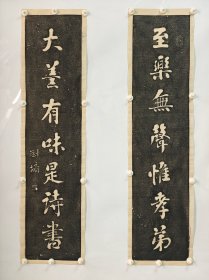 至樂無聲惟孝弟
大羹有味是詩書
劉墉